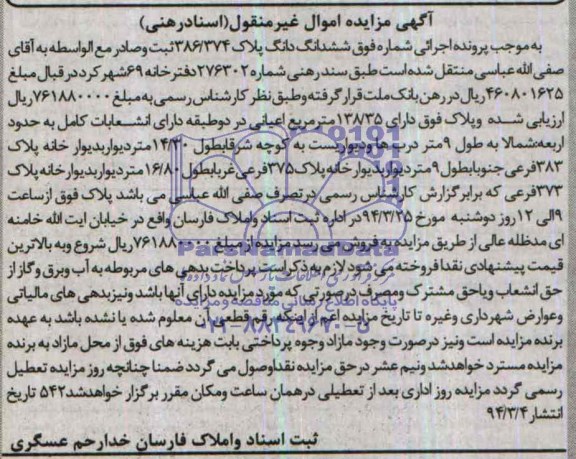 آگهی مزایده اموال غیرمنقول(اسنادرهنی)
به موجب پرونده اجرائی شماره فوق ششدانگ دانگ پلاک ۳۸۶/۳۷۴ ثبت وصادر مع الواسطه به آقای
صفی الله عباسی منتقل شده است طبق سند رهنی شماره ۲۷۶۳۰۲ دفترخانه ۶۹ شهرکرد در قبال مبلغ
۴۶۰۸۰۱۶۲۵ ریال در رهن بانک ملت قرار گرفته وطبق نظر کارشناس رسمی به مبلغ ۷۶۱۸۸۰۰۰۰ ریال
ارزیابی شده وپلاک فوق دارای ۱۳۸/۳۵ مترمربع اعیانی در دوطبقه دارای انشعابات کامل به حدود
اربعه:شمالا به طول ۹ متر درب ها ودیواریست به کوچه شرقابطول ۱۴/۳۰ متردیواربدیوار خانه پلاک
۳۸۳ فرعی جنوبابطول ۹ متردیواربدیوارخانه پلاک ۳۷۵ فرعی غربابطول ۱۶/۸۰ متردیواربدیوارخانه پلاک
۳۷۳ فرعی که برابرگزارش کارشناس رسمی درتصرف صفی الله عباسی می باشد پلاک فوق ازساعت
۹ الی ۱۲ روز دوشنبه مورخ ۹۴/۳/۲۵ در اداره ثبت اسناد واملاک فارسان واقع در خیابان ایت الله خامنه
ای مدظله عالی از طریق مزایده به فروش می رسد مزایده از مبلغ ۷۶۱۸۸۰۰۰۰ ریال شروع وبه بالاترین
قیمت پیشنهادی نقدا فروخته می شود لازم به ذکراست پرداخت بدهی های مربوطه به آب وبرق وگاز از
حق انشعاب ویاحق مشترک ومصرف درصورتی که مورد مزایده دارای آنها باشد ونیزبدهی های مالیاتی
وعوارض شهرداری وغیره تا تاریخ مزایده اعم از اینکه رقم قطعی آن معلوم شده یا نشده باشد به عهده
برنده مزایده است ونیز درصورت وجود مازاد وجوه پرداختی بابت هزینه های فوق از محل مازاد به برنده
مزایده مسترد خواهدشد ونیم عشر در حق مزایده نقداوصول می گردد ضمنا چنانچه روز مزایده تعطیل
رسمی گردد مزایده روز اداری بعد از تعطیلی درهمان ساعت ومکان مقرر برگزار خواهدشد ۵۴۲ تاریخ
انتشار ۹۴/۳/۴
ثبت اسناد واملاک فارسان خدارحم عسگری
ParsNamadData
پایگاه اطلاع رسانی مناقصه و مزایده
۰۲۱-۸۸۳۴۹۶۷۰-۵